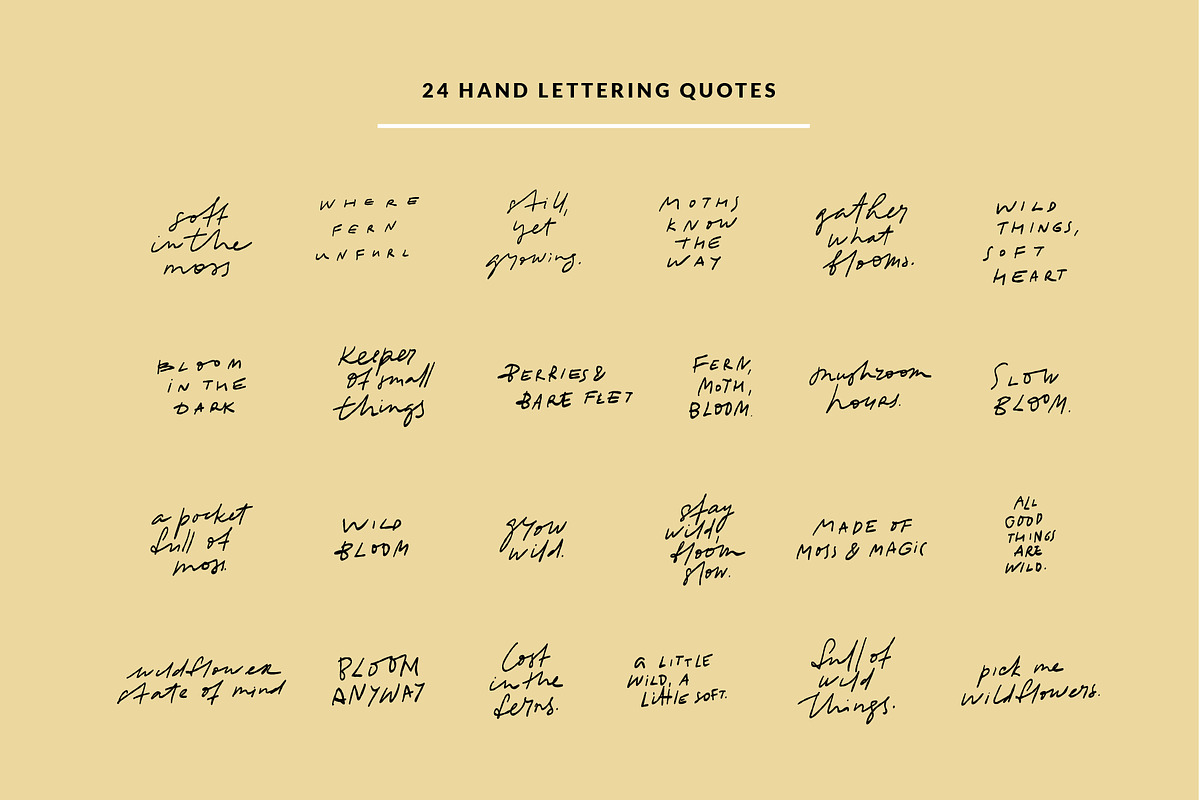 24 HAND LETTERING QUOTES
soft
in the
moss
WHERE
FERN
UNFURL
still,
yet
growing.
MOTHS
KNOW
THE
WAY
gather
what
blooms.
WILD
THINGS,
SOFT
HEART
BLOOM
IN THE
DARK
Keeper
of small
things
BERRIES &
BARE FEET
FERN,
MOTH,
BLOOM.
mushroom
hours.
SLOW
BLOOM.
a pocket
full of
moss.
WILD
BLOOM
grow
wild.
stay
wild,
bloom
slow.
MADE OF
MOSS & MAGIC
ALL
GOOD
THINGS
ARE
WILD.
wildflower
state of mind
BLOOM
ANYWAY
Lost
in the
ferns.
a LITTLE
WILD, A
LITTLE SOFT.
full of
wild
things.
pick me
wildflowers.